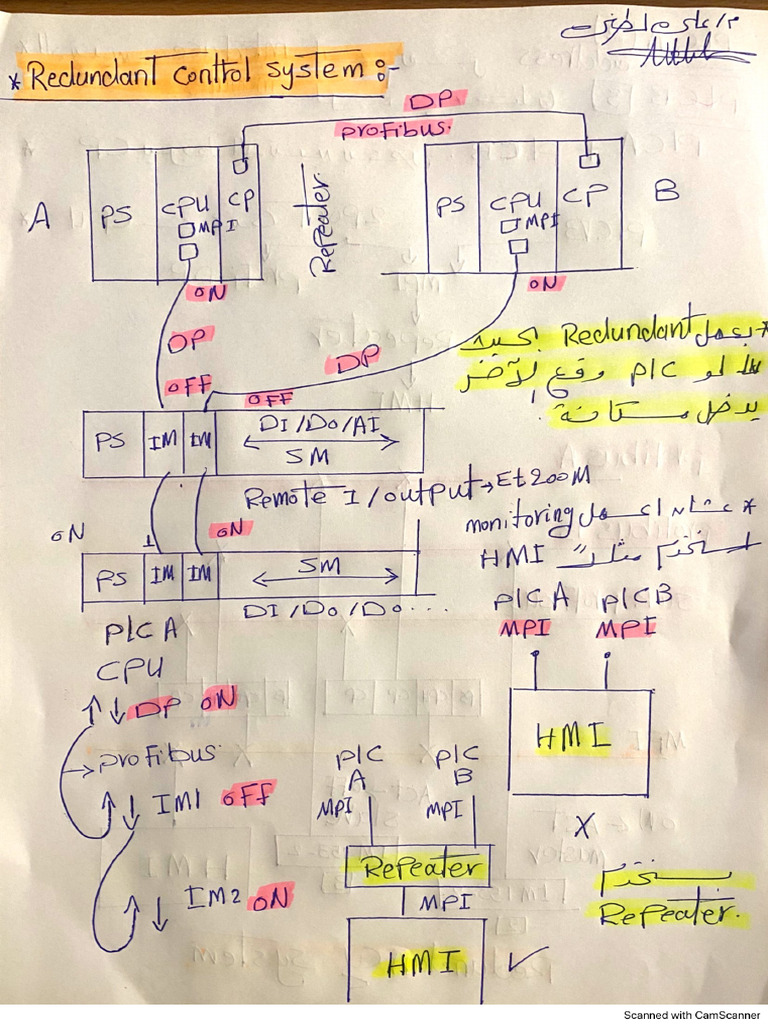 * Redundant Control System :-
DP
profibus.
A
PS
CPU
CP
MPI
Repeater
PS
CPU
CP
MPI
B
ON
ON
DP
DP
OFF
OFF
* بعمل Redundant بحيث
لو PLC وقع الآخر
يدخل مكانه.
PS
IM
IM
DI/DO/AI
SM
Remote I/output → Et200M
ON
ON
PS
IM
IM
SM
DI/DO/DO...
* عشان اعمل monitoring
استخدم مثلاً HMI
PLC A
PLC B
MPI
MPI
HMI
X
PLC A
CPU
DP ON
profibus
IM1 OFF
IM2 ON
PLC
A
PLC
B
MPI
MPI
Repeater
MPI
HMI
✓
يستخدم
Repeater.
Scanned with CamScanner